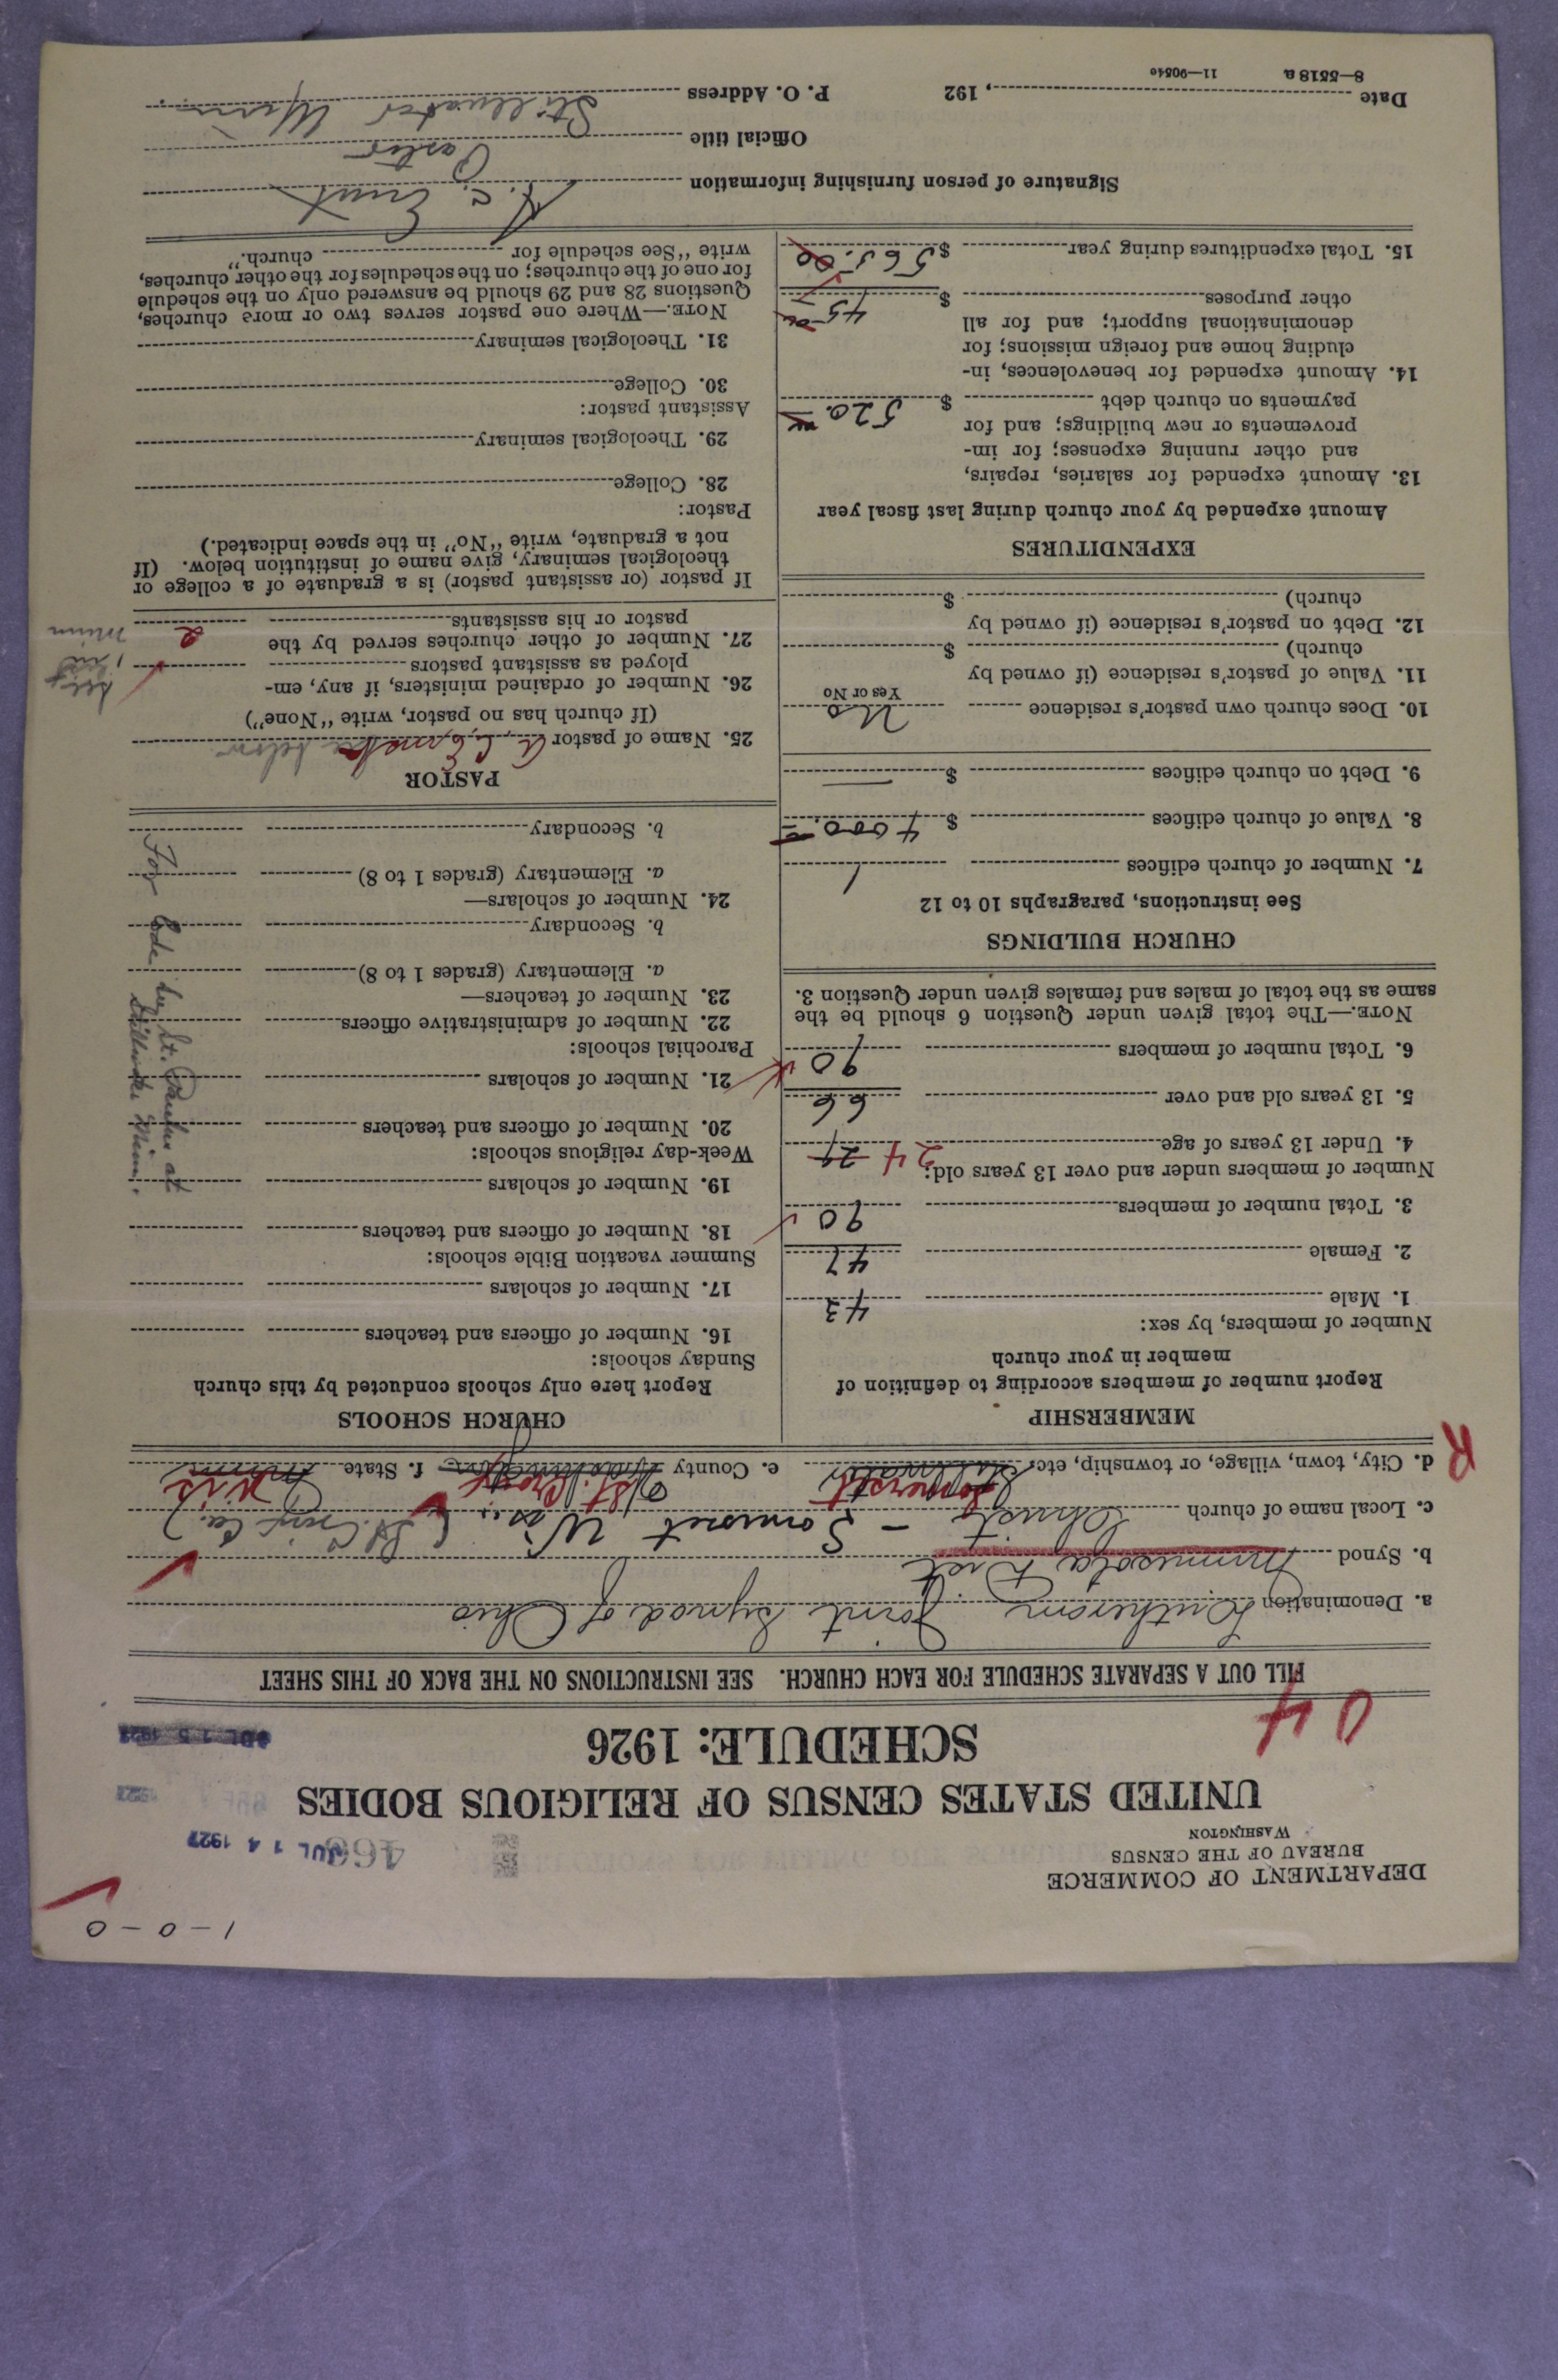 1-0-0
DEPARTMENT OF COMMERCE
BUREAU OF THE CENSUS
WASHINGTON
JUL 14 1927
UNITED STATES CENSUS OF RELIGIOUS BODIES
SCHEDULE: 1926
04
FILL OUT A SEPARATE SCHEDULE FOR EACH CHURCH. SEE INSTRUCTIONS ON THE BACK OF THIS SHEET
a. Denomination Lutheran Joint Synod of Ohio
b. Synod Minnesota Dist.
c. Local name of church Christ - Somerset Wis. (St. Croix Co.)
d. City, town, village, or township, etc. Stillwater Somerset e. County Washington St. Croix f. State Minn Wis
R
MEMBERSHIP
Report number of members according to definition of
member in your church
Number of members, by sex:
1. Male 43
2. Female 47
3. Total number of members 90
Number of members under and over 13 years old:
4. Under 13 years of age 24
5. 13 years old and over 66
6. Total number of members 90
NOTE.—The total given under Question 6 should be the
same as the total of males and females given under Question 3.
CHURCH BUILDINGS
See instructions, paragraphs 10 to 12
7. Number of church edifices 1
8. Value of church edifices $ 4000.
9. Debt on church edifices $ —
10. Does church own pastor's residence No
Yes or No
11. Value of pastor's residence (if owned by
church) $
12. Debt on pastor's residence (if owned by
church) $
EXPENDITURES
Amount expended by your church during last fiscal year
13. Amount expended for salaries, repairs,
and other running expenses; for im-
provements or new buildings; and for
payments on church debt $ 520.
14. Amount expended for benevolences, in-
cluding home and foreign missions; for
denominational support; and for all
other purposes $ 45
15. Total expenditures during year $ 565.00
CHURCH SCHOOLS
Report here only schools conducted by this church
Sunday schools:
16. Number of officers and teachers
17. Number of scholars
Summer vacation Bible schools:
18. Number of officers and teachers
19. Number of scholars
Week-day religious schools:
20. Number of officers and teachers
21. Number of scholars
Parochial schools:
22. Number of administrative officers
23. Number of teachers—
a. Elementary (grades 1 to 8)
b. Secondary
24. Number of scholars—
a. Elementary (grades 1 to 8)
b. Secondary
PASTOR
25. Name of pastor A. C. Ernst
(If church has no pastor, write "None")
26. Number of ordained ministers, if any, em-
ployed as assistant pastors
27. Number of other churches served by the
pastor or his assistants 2
If pastor (or assistant pastor) is a graduate of a college or
theological seminary, give name of institution below. (If
not a graduate, write "No" in the space indicated.)
Pastor:
28. College
29. Theological seminary
Assistant pastor:
30. College
31. Theological seminary
NOTE.—Where one pastor serves two or more churches,
Questions 28 and 29 should be answered only on the schedule
for one of the churches; on the schedules for the other churches,
write "See schedule for church."
Signature of person furnishing information A. C. Ernst
Official title Pastor
Date , 192 P. O. Address Stillwater Minn
8—5518 a 11—9054c